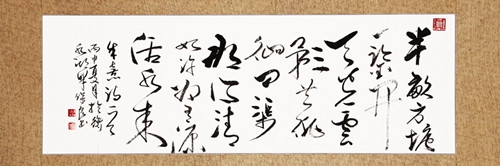 半畝方塘
一鉴開
天光雲
影共徘
徊問渠
那得清
如许为有源
活水来
朱熹诗一首
丙申夏月於